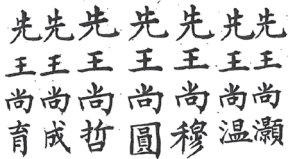 先王尚灝
先王尚温
先王尚穆
先王尚圓
先王尚哲
先王尚成
先王尚育